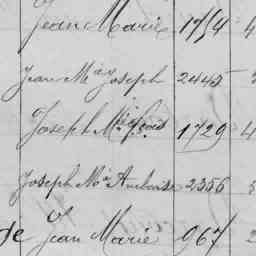 Jean Marie 1754 4
Jean Mª Joseph 2445
Joseph Mie 1729 4
Joseph Mª Ambroise 2356
Jean Marie 967